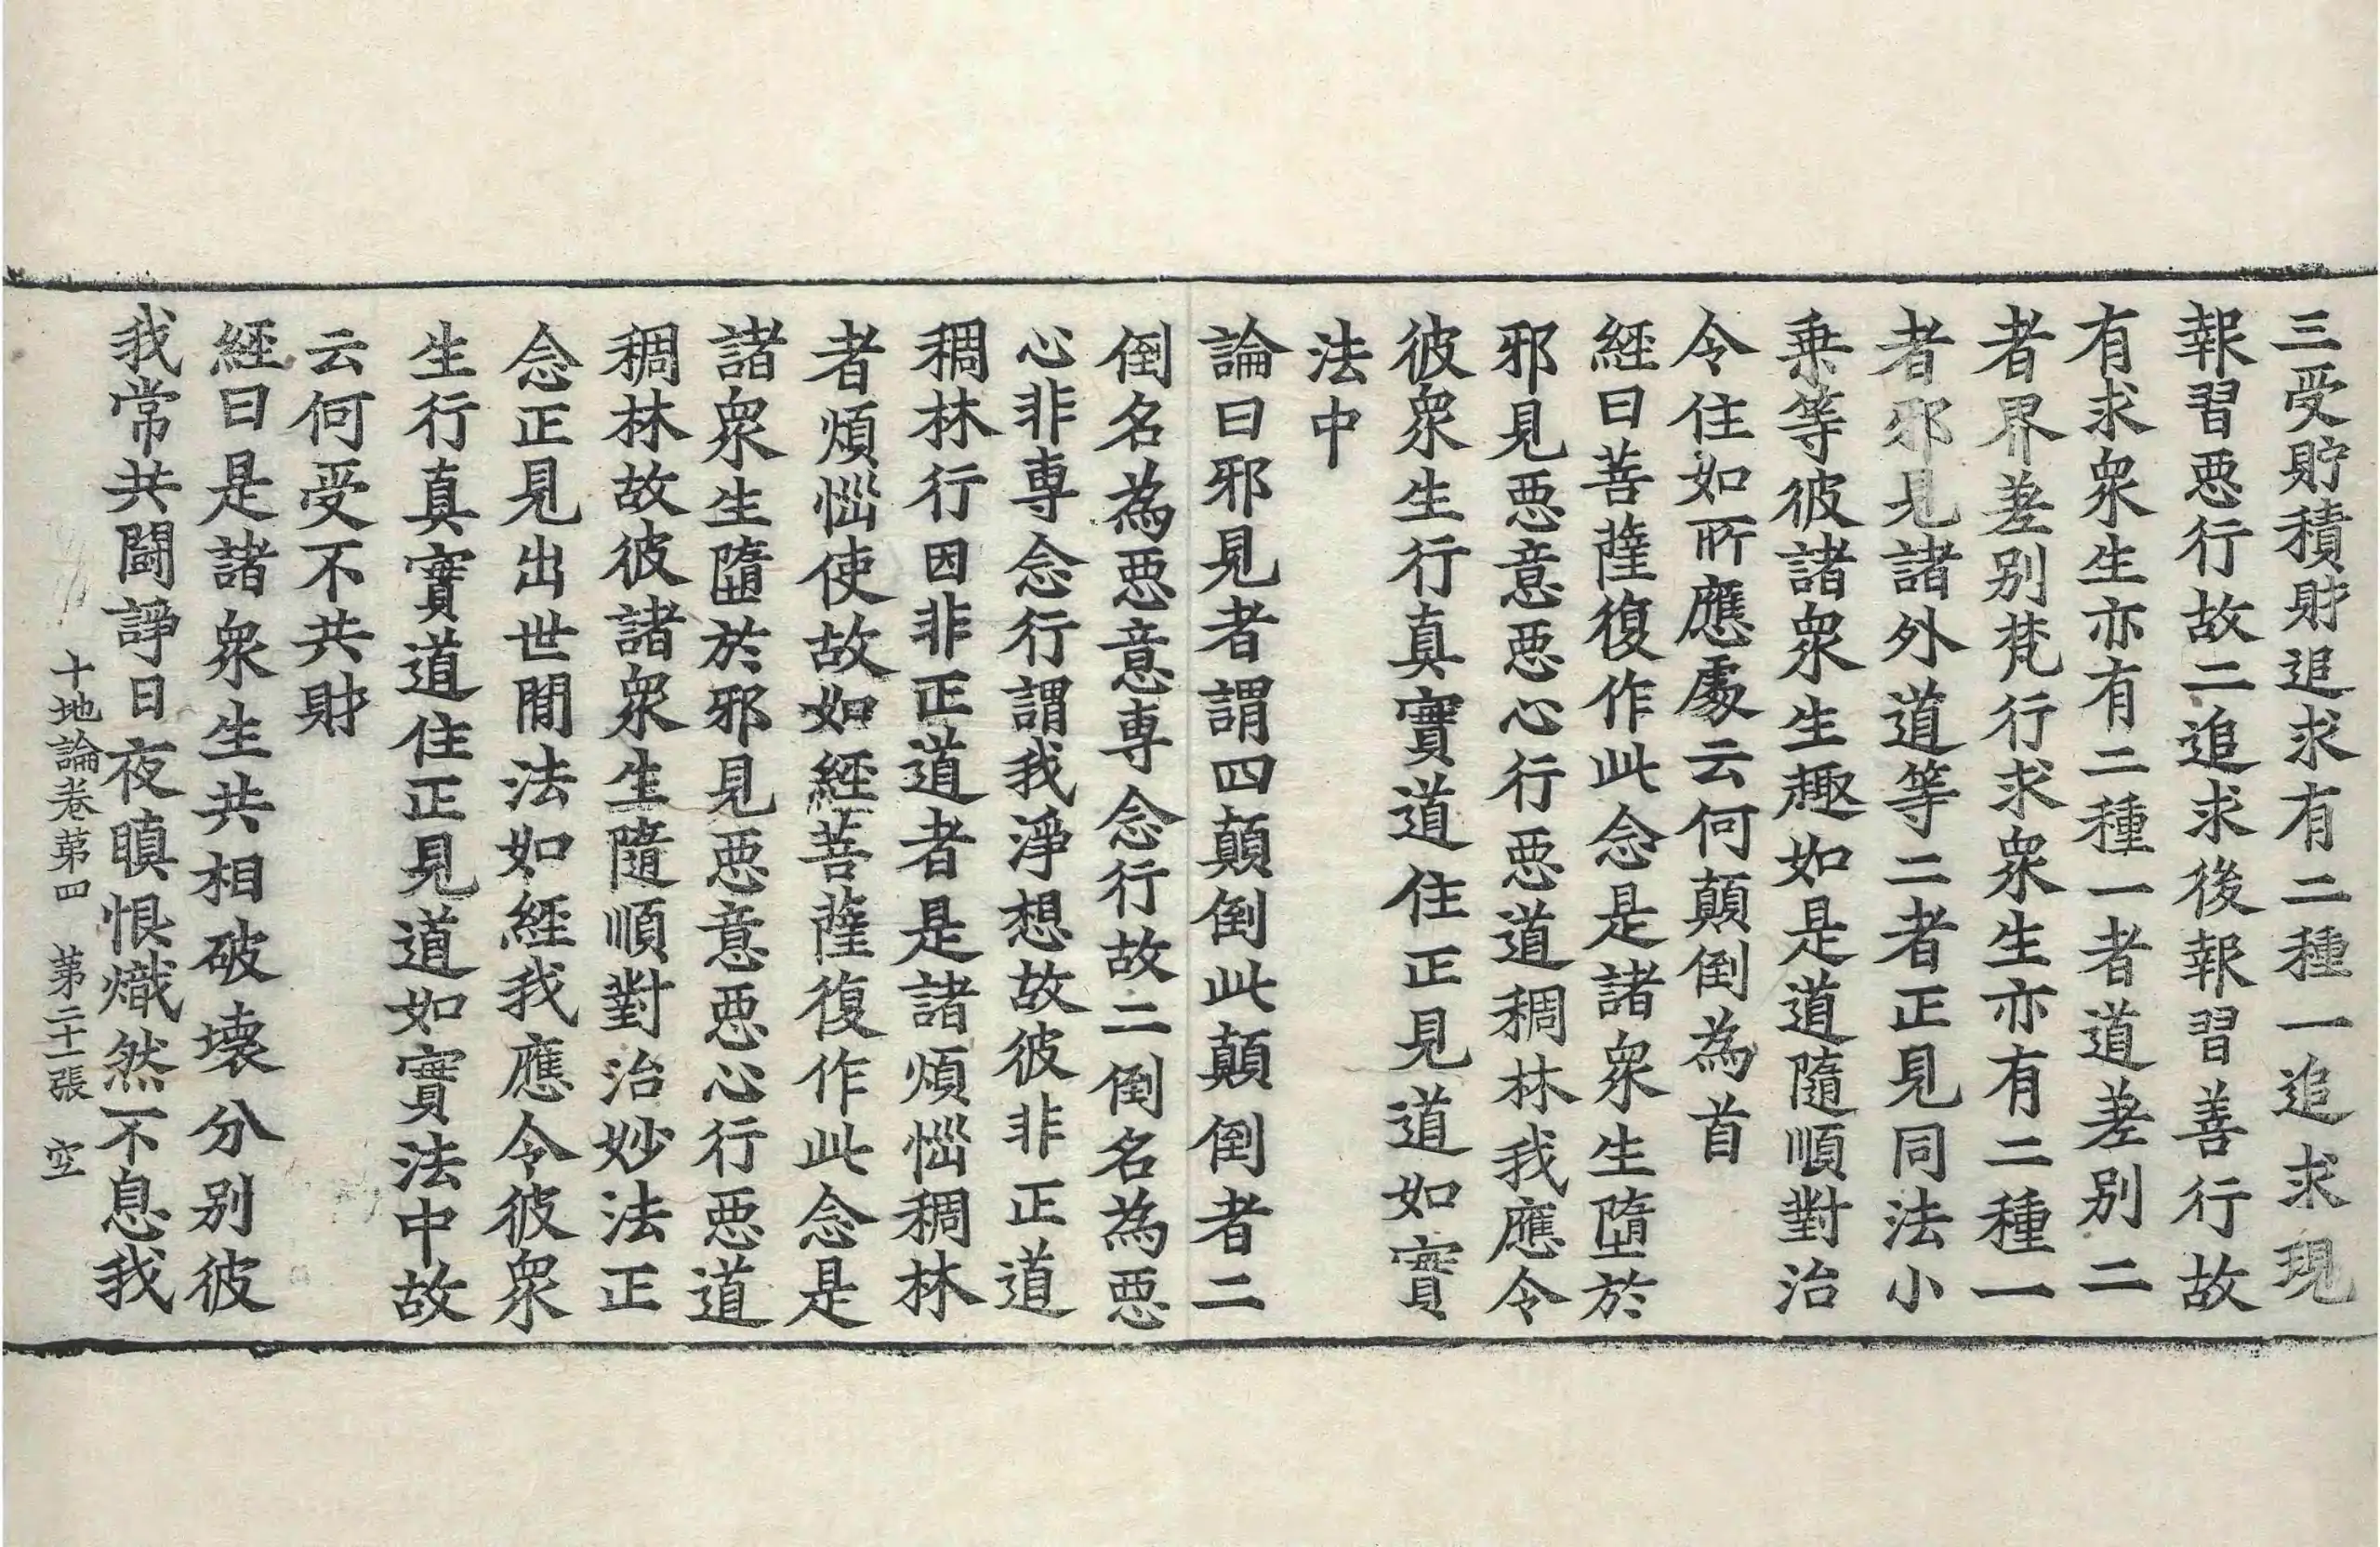 三受貯積財追求有二種一追求現
報習惡行故二追求後報習善行故
有求衆生亦有二種一者道差别二
者界差别梵行求衆生亦有二種一
者邪見諸外道等二者正見同法小
乗等彼諸衆生趣如是道隨順對治
令住如所應處云何顛倒為首
經曰菩薩復作此念是諸衆生墮於
邪見惡意惡心行惡道稠林我應令
彼衆生行真實道住正見道如實
法中
論曰邪見者謂四顛倒此顛倒者二
倒名為惡意専念行故二倒名為惡
心非専念行謂我淨想故彼非正道
稠林行因非正道者是諸煩惱稠林
者煩惱使故如經菩薩復作此念是
諸衆生墮於邪見惡意惡心行惡道
稠林故彼諸衆生隨順對治妙法正
念正見出世間法如經我應令彼衆
生行真實道住正見道如實法中故
云何受不共財
經曰是諸衆生共相破壊分别彼
我常共闘諍日夜瞋恨熾然不息我
十地論卷第四 第二十一張 空